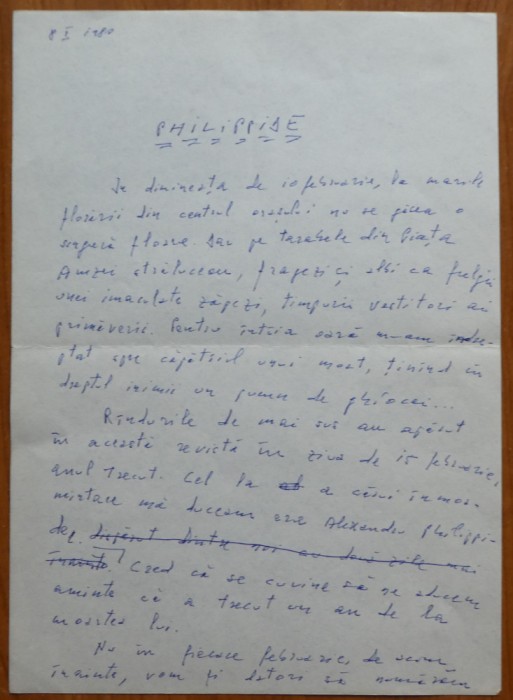 8 I 1980
PHILIPPIDE
In dimineața de 10 februarie, la marile
florării din centrul orașului nu se găsea o
singură floare. Dar pe tarabele din Piața
Amzei străluceau, fragezi și albi ca fulgii
unei imaculate zăpezi, timpurii vestitori ai
primăverii. Pentru întîia oară m-am îndre-
ptat spre căpătîiul unui mort, ținînd în
dreptul inimii un pumn de ghiocei...
Rîndurile de mai sus au apărut
în această revistă în ziua de 15 februarie,
anul trecut. Cel la a cărui înmor-
mîntare mă duceam era Alexandru Philippi-
de, dispărut dintre noi cu două zile mai
înainte. Cred că se cuvine să ne aducem
aminte că a trecut un an de la
moartea lui.
Nu în fiecare februarie, de acum
înainte, vom fi datori să numărăm